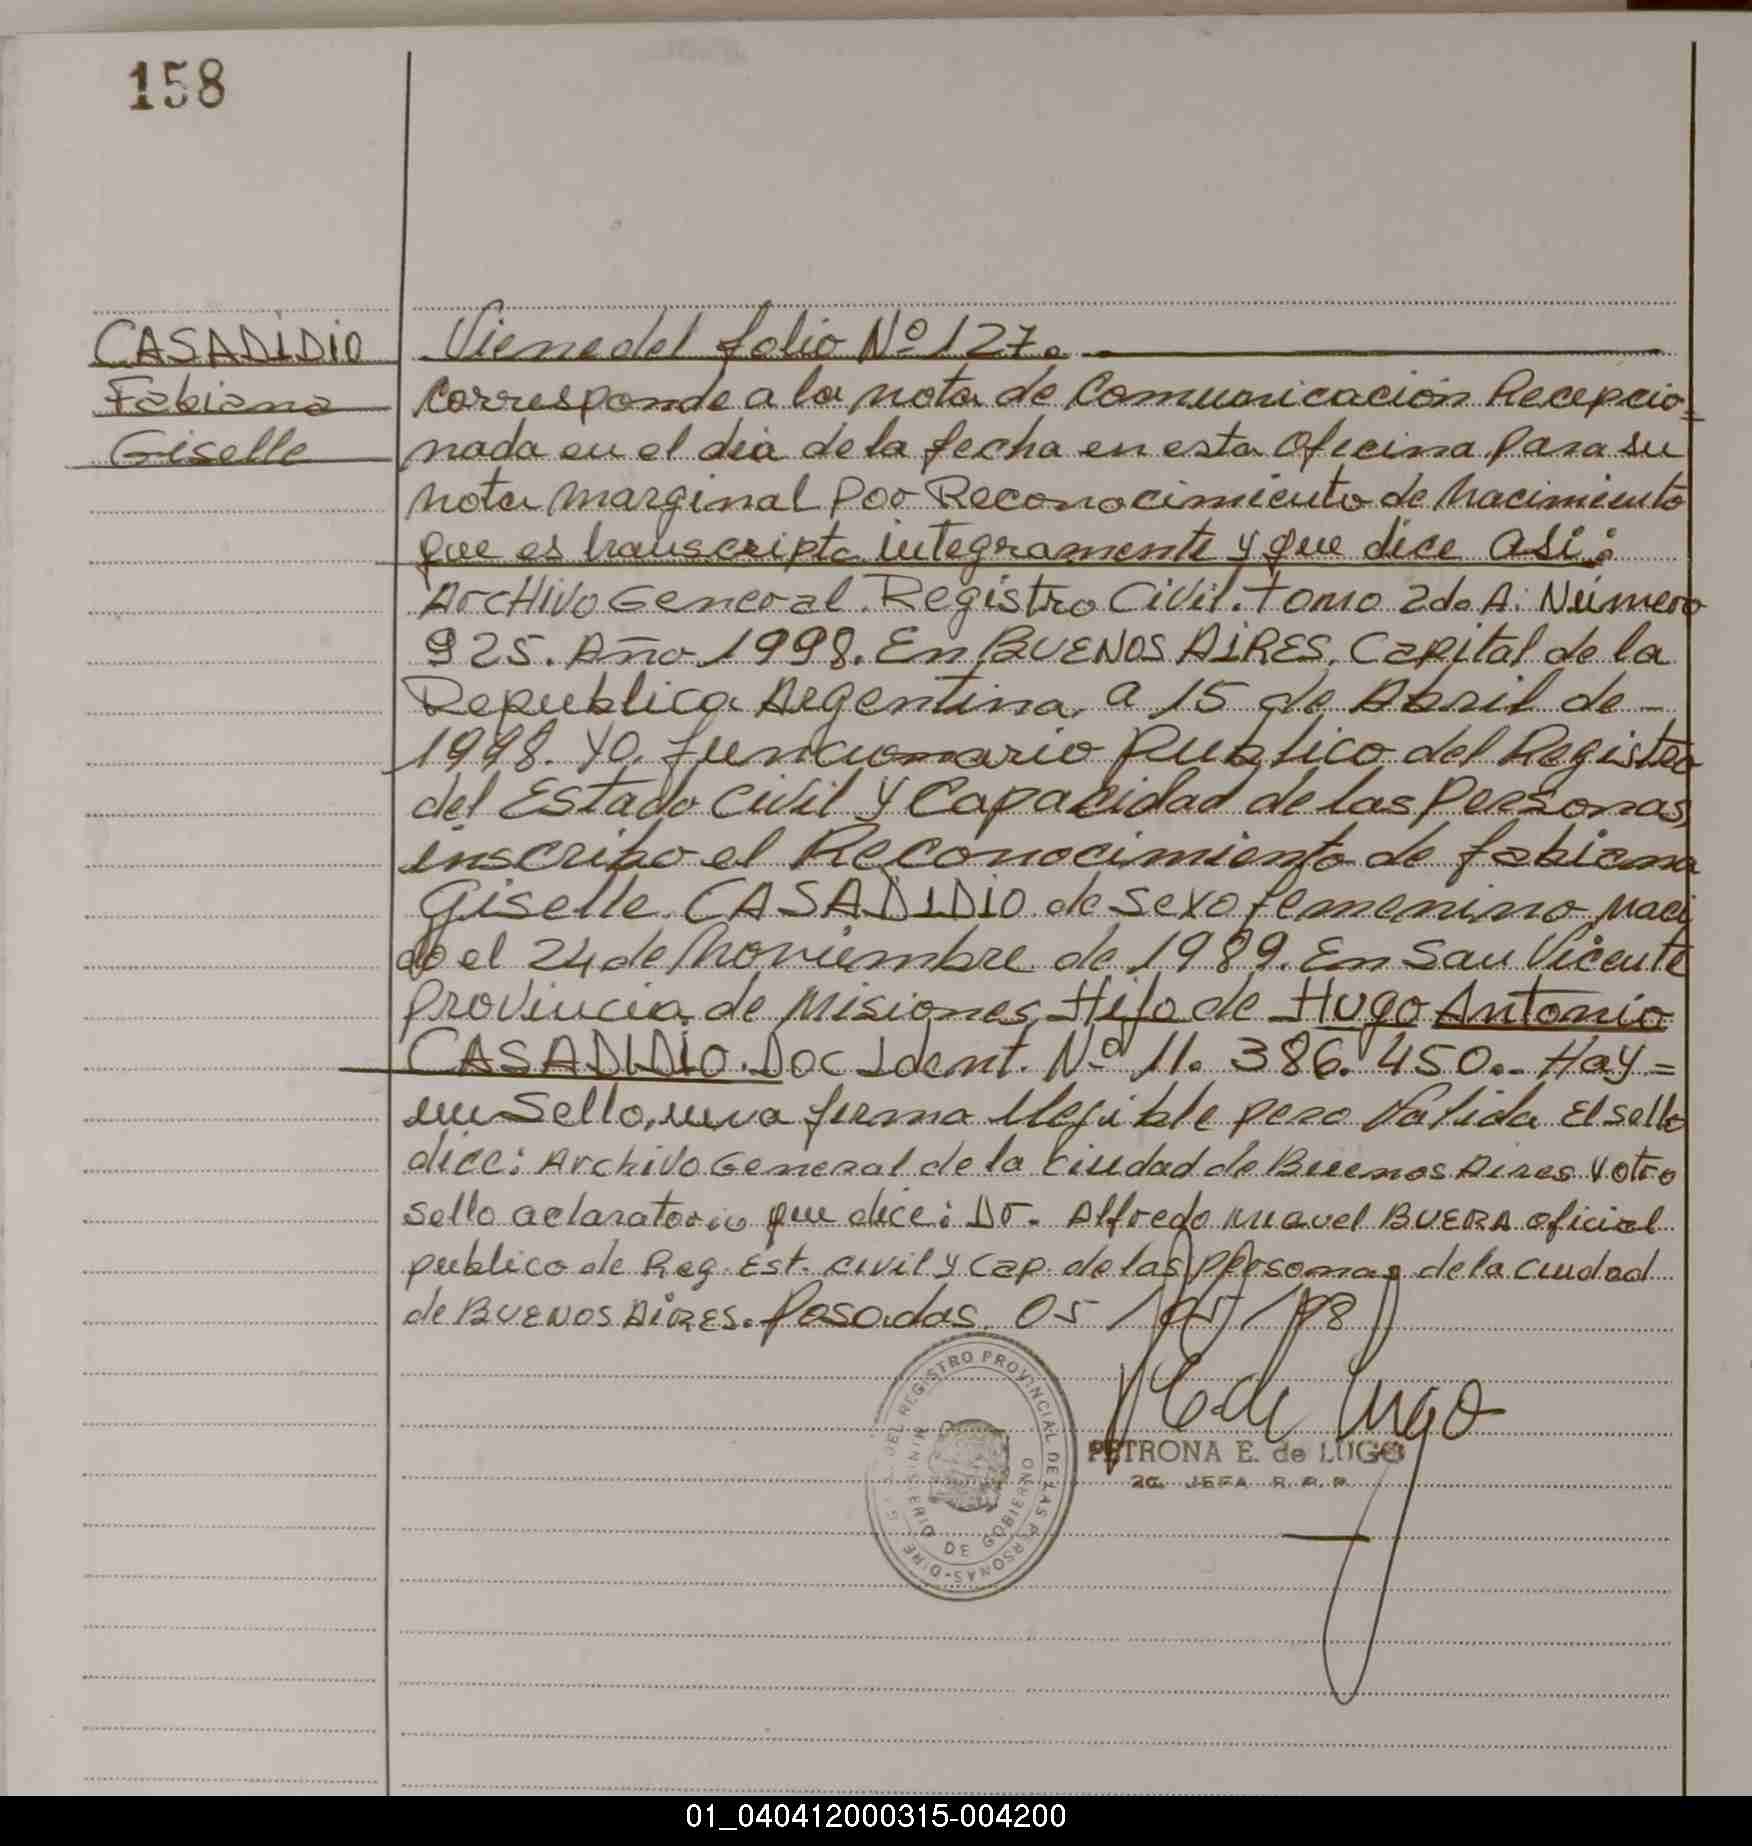 158
CASADIDIO
Fabiana
Giselle
Viene del folio Nº 127.
Corresponde a la nota de Comunicación Recepcio=
nada en el dia de la fecha en esta Oficina Para su
nota marginal Por Reconocimiento de Nacimiento
que es transcripta integramente y que dice asi:
Archivo General. Registro Civil. Tomo 2do A: Número
925. Año 1998. En BUENOS AIRES, Capital de la
Republica Argentina, a 15 de Abril de -
1998. Yo, funcionario Publico del Registro
del Estado Civil y Capacidad de las Personas,
inscribo el Reconocimiento de fabiana
Giselle CASADIDIO de sexo femenino naci
do el 24 de Noviembre de 1989. En San Vicente
Provincia de Misiones, Hija de Hugo Antonio
CASADIDIO. Doc Ident. Nº 11. 386. 450.- Hay =
un Sello, una firma Ilegible pero Valida El sello
dice: Archivo General de la Ciudad de Buenos Aires y otro
sello aclaratorio que dice: Dr. Alfredo BUERA oficial
publico de Reg. Est. civil y Cap. de las Personas de la Ciudad
de BUENOS AIRES. Posadas, 05 / 05 / 98
E. de Lugo
PETRONA E. de LUGO
JEFA R. P. P.
DEL REGISTRO PROVINCIAL DE LAS PERSONAS-DIRE G
MINISTERIO DE GOBIERNO
01_040412000315-004200